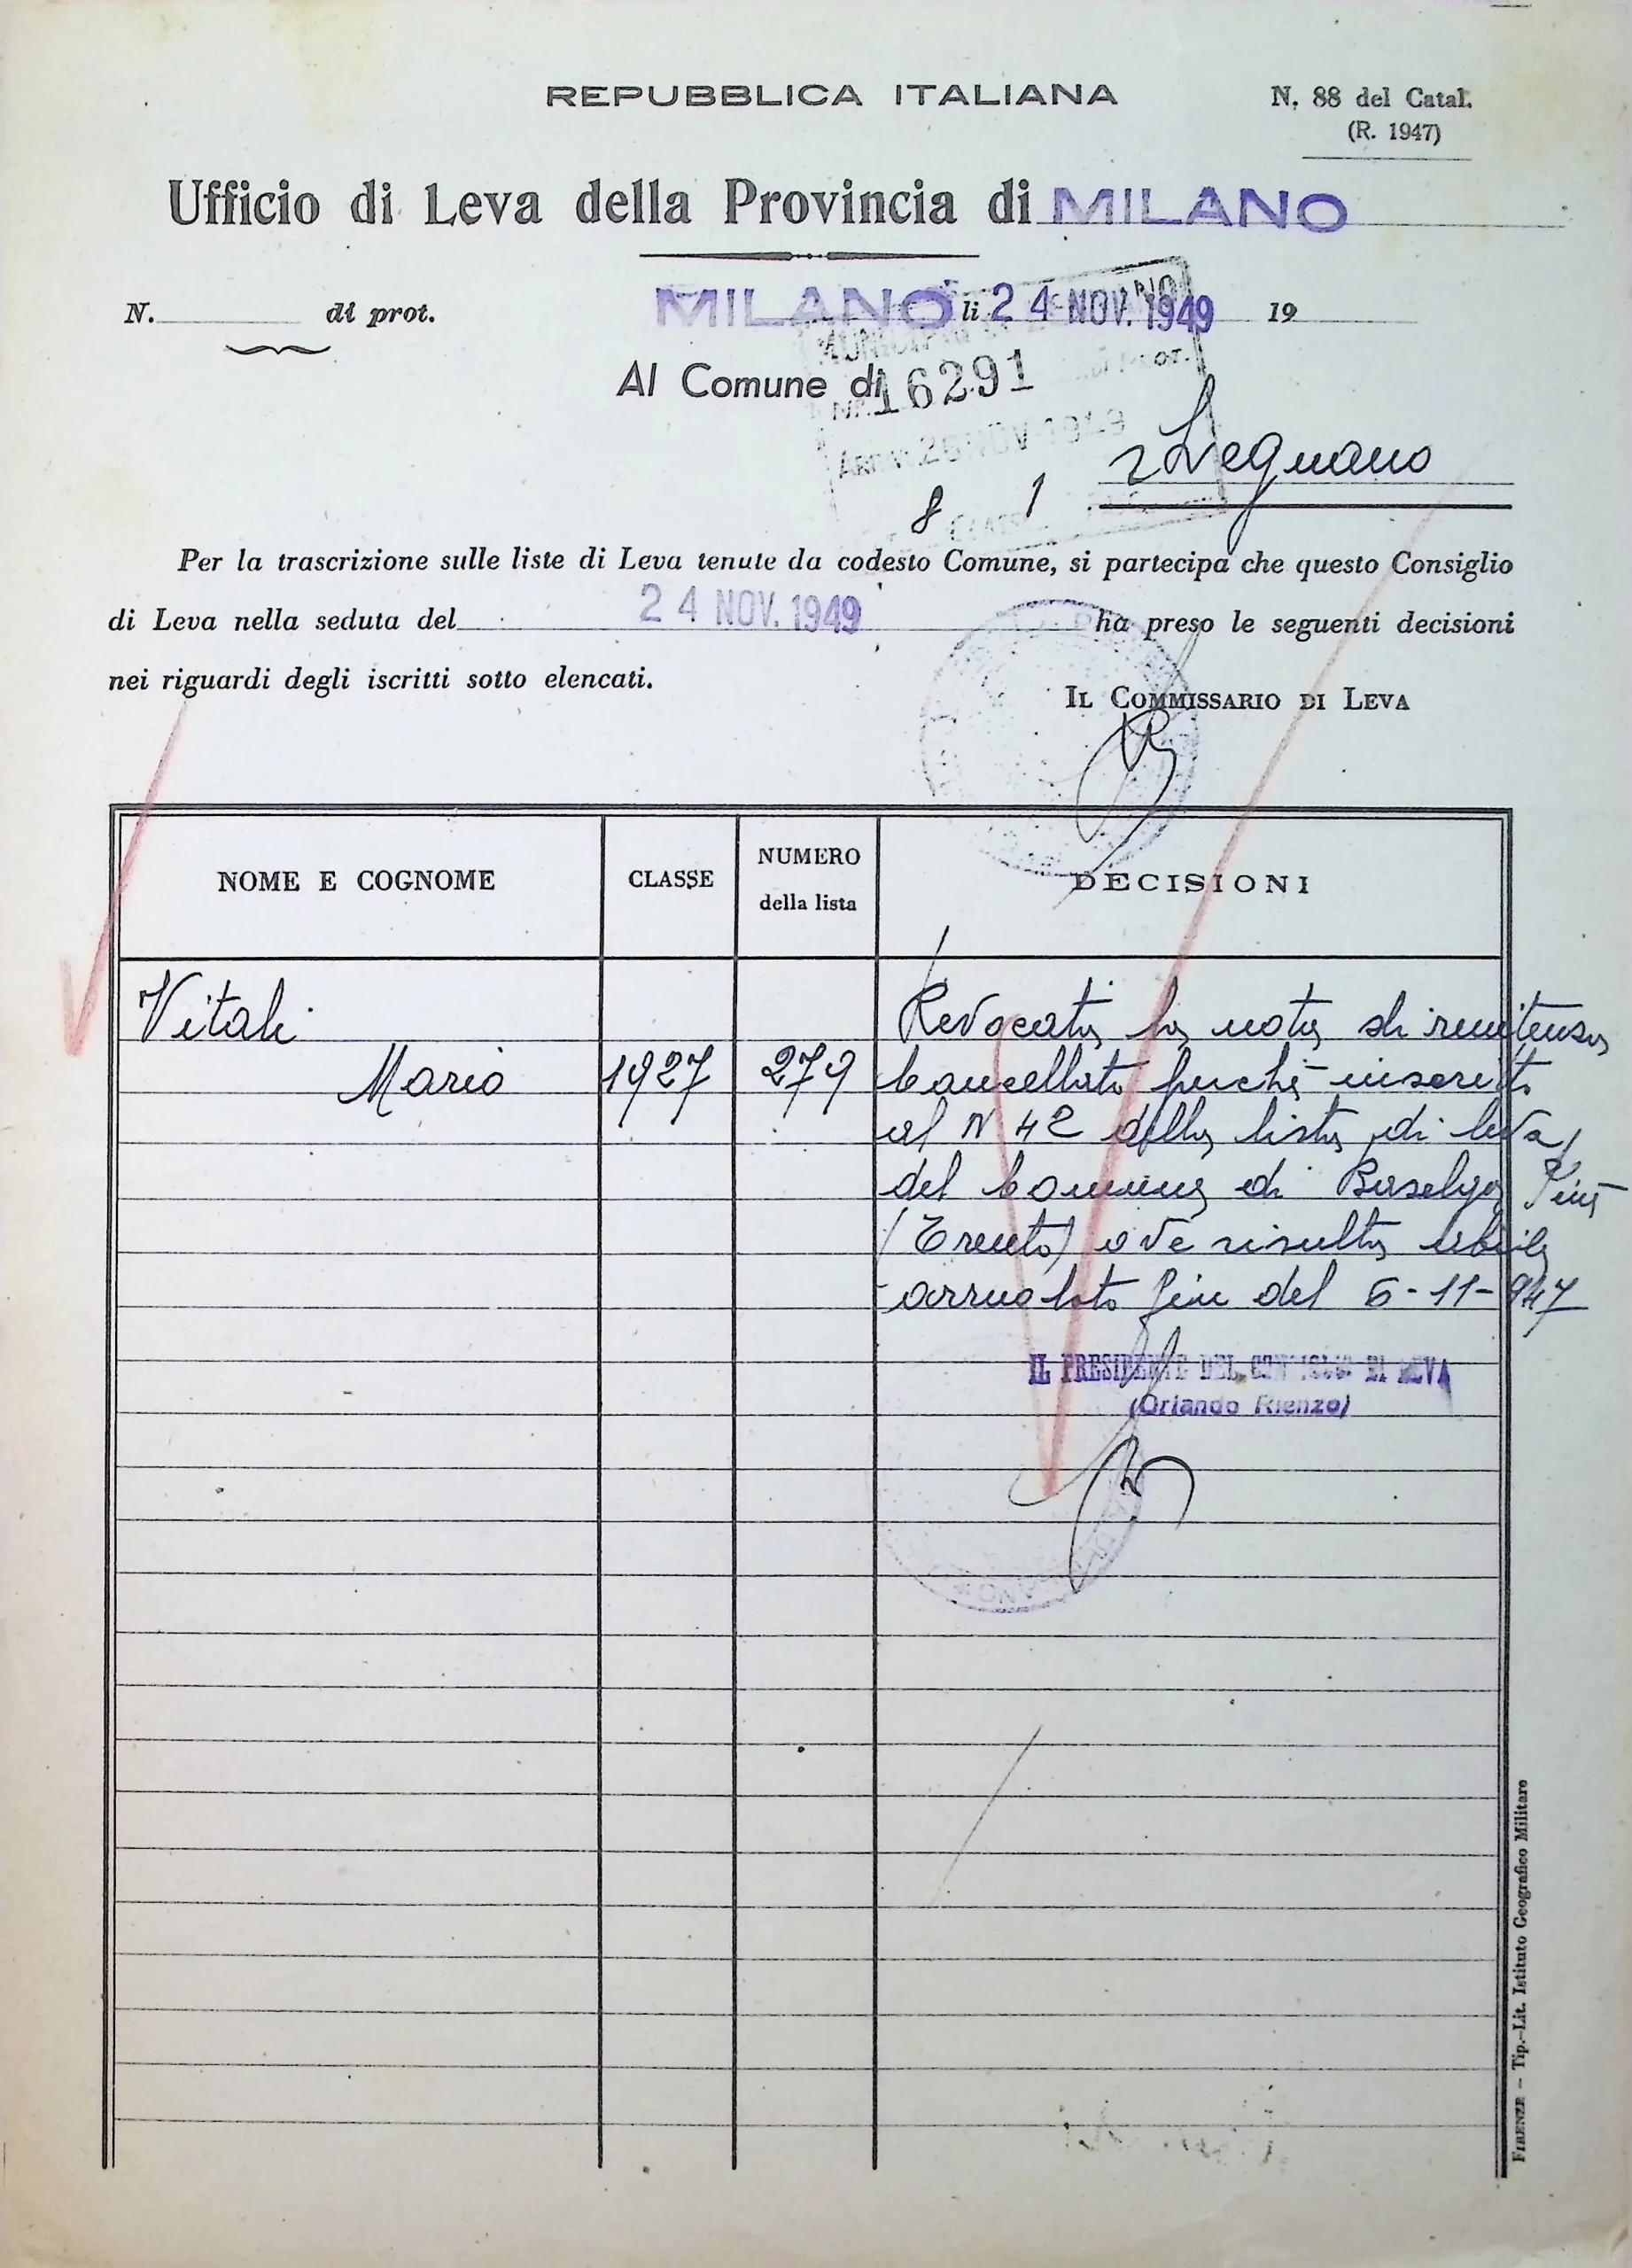 REPUBBLICA ITALIANA
N. 88 del Catal.
(R. 1947)
Ufficio di Leva della Provincia di MILANO
N. di prot.
MILANO li 24 NOV. 1949 19
Al Comune di
16291
Legnano
8 1
Per la trascrizione sulle liste di Leva tenute da codesto Comune, si partecipa che questo Consiglio
di Leva nella seduta del 24 NOV. 1949 ha preso le seguenti decisioni
nei riguardi degli iscritti sotto elencati.
IL COMMISSARIO DI LEVA
NOME E COGNOME CLASSE NUMERO della lista DECISIONI
Vitali Revocata la nota di renitenza
Mario 1927 279 Cancellato perchè inscritto
al N 42 della lista di leva
del Comune di Baselga Pinè
(Trento) ove risulta abile
arruolato fin del 6-11-947
IL PRESIDENTE DEL CONSIGLIO DI LEVA
(Orlando Rienzo)
FIRENZE - Tip.-Lit. Istituto Geografico Militare